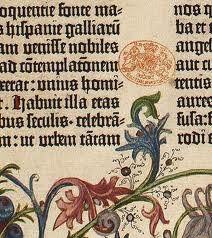 oquentie fonte ma-
s hispanie galliarū
am venisse nobiles
ad cōtemplaconem
xerat: unius homi-
Habuit illa etas
ibus seculis celebrā-
m: ut urbem tātam
nos q
ba et
an
fusa:
rodi